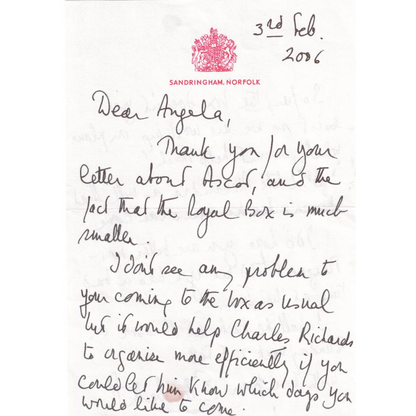 3rd Feb.
2006
SANDRINGHAM, NORFOLK
Dear Angela,
Thank you for your
letter about Ascot, and the
fact that the Royal Box is much
smaller.
I don't see any problem to
your coming to the box as usual
but it would help Charles Richards
to organise more efficiently if you
could let him know which days you
would like to come.